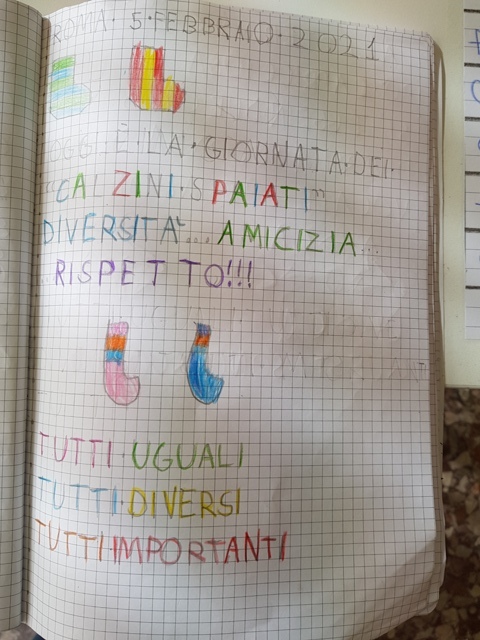 ROMA·5·FEBBRAIO·2021
OGGI·È·LA·GIORNATA·DEI·
"CALZINI·SPAIATI"
DIVERSITÀ... AMICIZIA...
...RISPETTO!!!
TUTTI·UGUALI
TUTTI·DIVERSI
TUTTI·IMPORTANTI